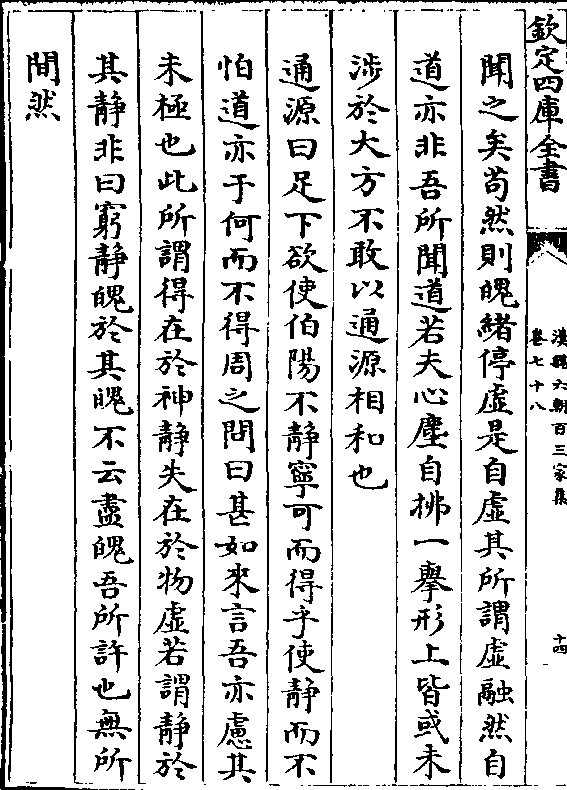 欽定四庫全書
漢魏六朝百三家集
卷七十八
十四
聞之矣苟然則魄緒停虛是自虛其所謂虛融然自
道亦非吾所聞道若夫心塵自拂一舉形上皆或未
涉於大方不敢以通源相和也
通源曰足下欲使伯陽不靜寧可而得乎使靜而不
怕道亦于何而不得周之問曰甚如來言吾亦慮其
未極也此所謂得在於神靜失在於物虛若謂靜於
其靜非曰窮靜魄於其魄不云盡魄吾所許也無所
間然